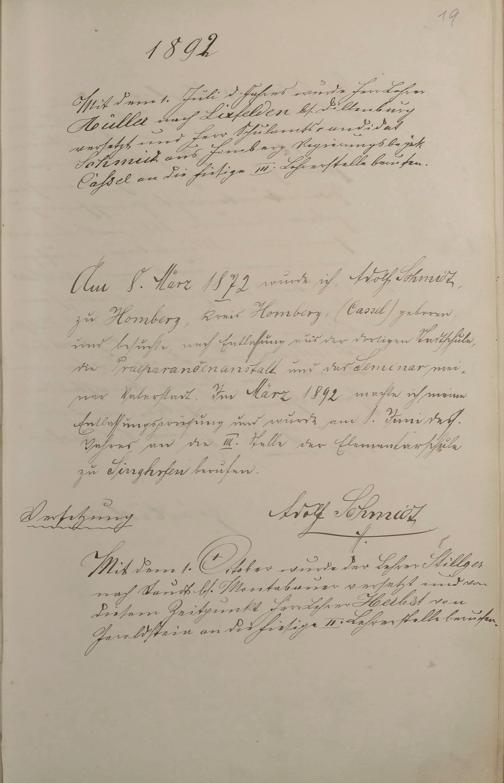 19
1892
Mit dem 1. Juli d. Jahres wurde Herr Lehrer
Müller nach Lixfelden bs. Dillenburg
versetzt und Herr Schulamtscandidat
Schmidt aus Homberg, Regierungsbezk.
Cassel an die hiesige III. Lehrerstelle berufen.
Am 8. März 1872 wurde ich, Adolf Schmidt,
zu Homberg, Kreis Homberg, (Cassel) geboren
und besuchte, nach Entlassung aus der dortigen Stadtschule,
die Praeparandenanstalt und das Seminar mei-
ner Vaterstadt. Im März 1892 machte ich meine
Entlassungsprüfung und wurde am 1. Juni des.
Jahres an die III. Stelle der Elementarschule
zu Singhofen berufen.
Adolf Schmidt
Versetzung
Mit dem 1. October wurde der Lehrer Stillger
nach bs. Montabaur versetzt und von
diesem Zeitpunkt Herr Lehrer Herbst von
an die hiesige II. Lehrerstelle berufen.